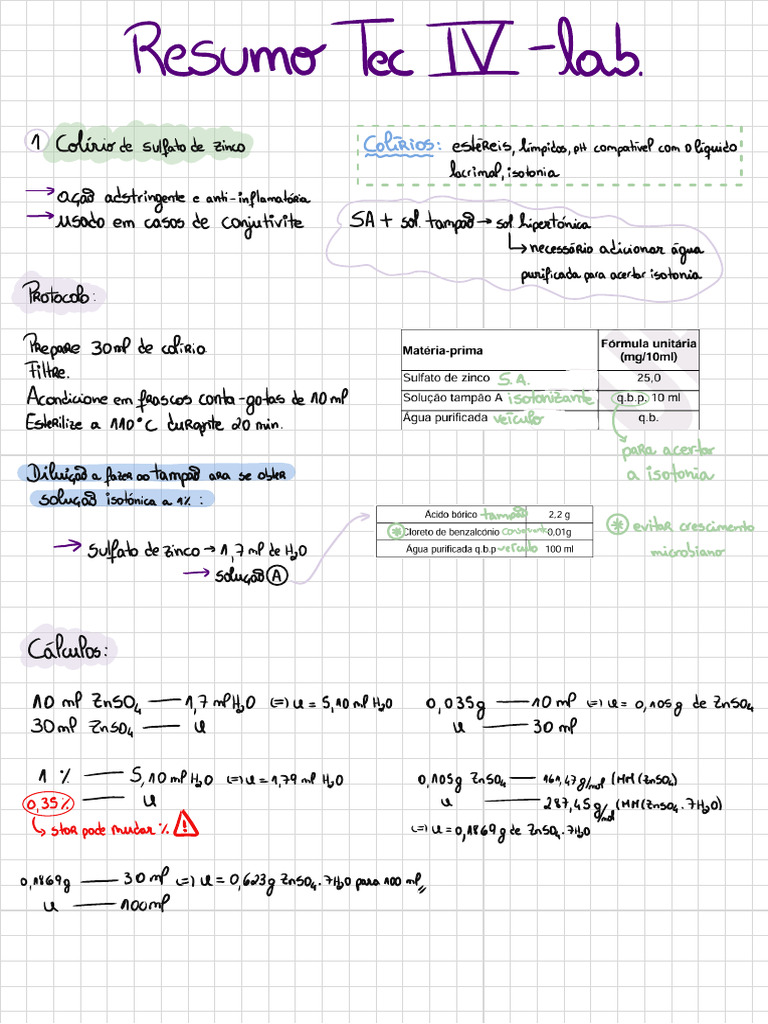 Resumo Tec IV - lab.
1 Colírio de sulfato de zinco
→ ação adstringente e anti-inflamatória
→ usado em casos de conjutivite
Colírios: estéreis, límpidos, pH compatível com o líquido
lacrimal, isotonia
SA + sol. tampão → sol. hipertónica
↳ necessário adicionar água
purificada para acertar isotonia
Protocolo:
Prepare 30ml de colírio
Filtre.
Acondicione em frascos conta-gotas de 10 ml
Esterilize a 110°C durante 20 min.
Matéria-prima Fórmula unitária (mg/10ml)
Sulfato de zinco S.A. 25,0
Solução tampão A isotonizante q.b.p. 10 ml
Água purificada veículo q.b.
para acertar
a isotonia
Diluição a fazer ao tampão ara se obter
solução isotónica a 1%:
→ Sulfato de zinco → 1,7 ml de H2O
→ solução A
Ácido bórico tampão 2,2 g
* Cloreto de benzalcónio 0,01g
Água purificada q.b.p veículo 100 ml
* evitar crescimento
microbiano
Cálculos:
10 ml ZnSO4 — 1,7 ml H2O (=) u = 5,10 ml H2O
30 ml ZnSO4 — u
0,035g — 10 ml (=) u = 0,105g de ZnSO4
u — 30 ml
1 % — 5,10 ml H2O (=) u = 1,79 ml H2O
0,35% — u
↳ stor pode mudar % ⚠
0,105g ZnSO4 — 161,47g/mol (MM(ZnSO4)
u — 287,45g/mol (MM(ZnSO4.7H2O)
(=) u = 0,1869g de ZnSO4.7H2O
0,1869g — 30 ml (=) u = 0,623g ZnSO4.7H2O para 100 ml //
u — 100 ml